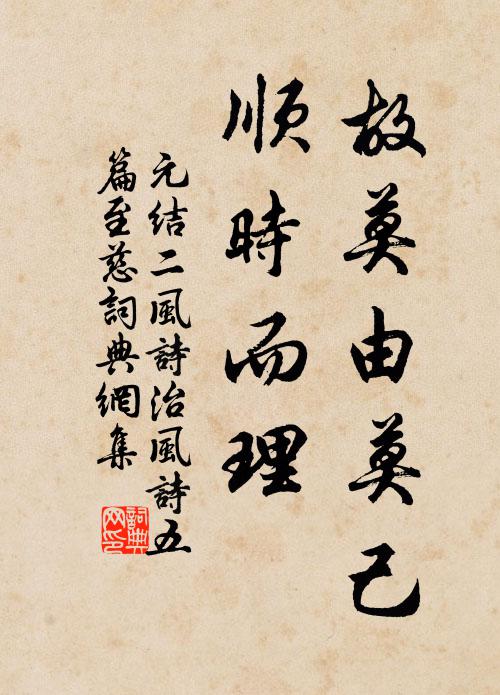 故莫由莫己
順時而理
元結二風詩治風詩五
篇至慈詞典網集
詞典网印